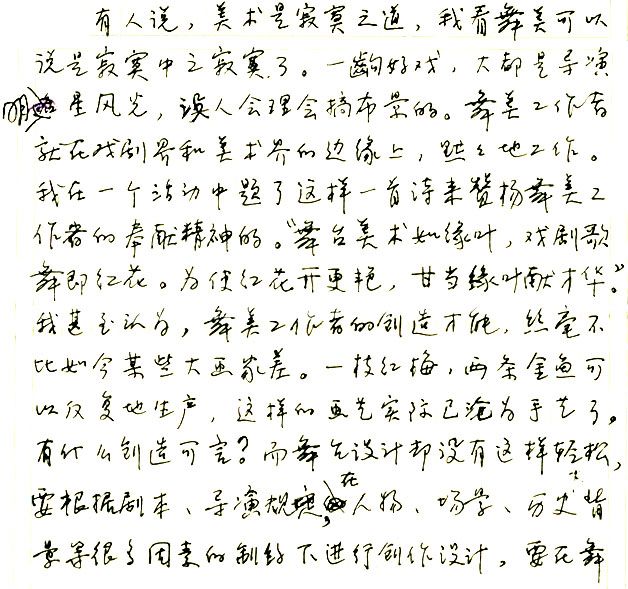 有人说，美术是寂寞之道，我看舞美可以
说是寂寞中之寂寞了。一齣好戏，大都是导演
明星风光，误人会理会搞布景的。舞美工作者
就在戏剧界和美术界的边缘上，默々地工作。
我在一个活动中题了这样一首诗来赞扬舞美工
作者的奉献精神的。“舞台美术如绿叶，戏剧歌
舞即红花。为使红花开更艳，甘当绿叶献才华。”
我甚至认为，舞美工作者的创造才能，丝毫不
比如今某些大画家差。一枝红梅，两条金鱼可
以反复地生产，这样的画艺实际已沦为手艺了。
有什么创造可言？而舞台设计却没有这样轻松，
要根据剧本、导演规定，在人物、场景、历史背
景等很多因素的制约下进行创作设计，要在舞